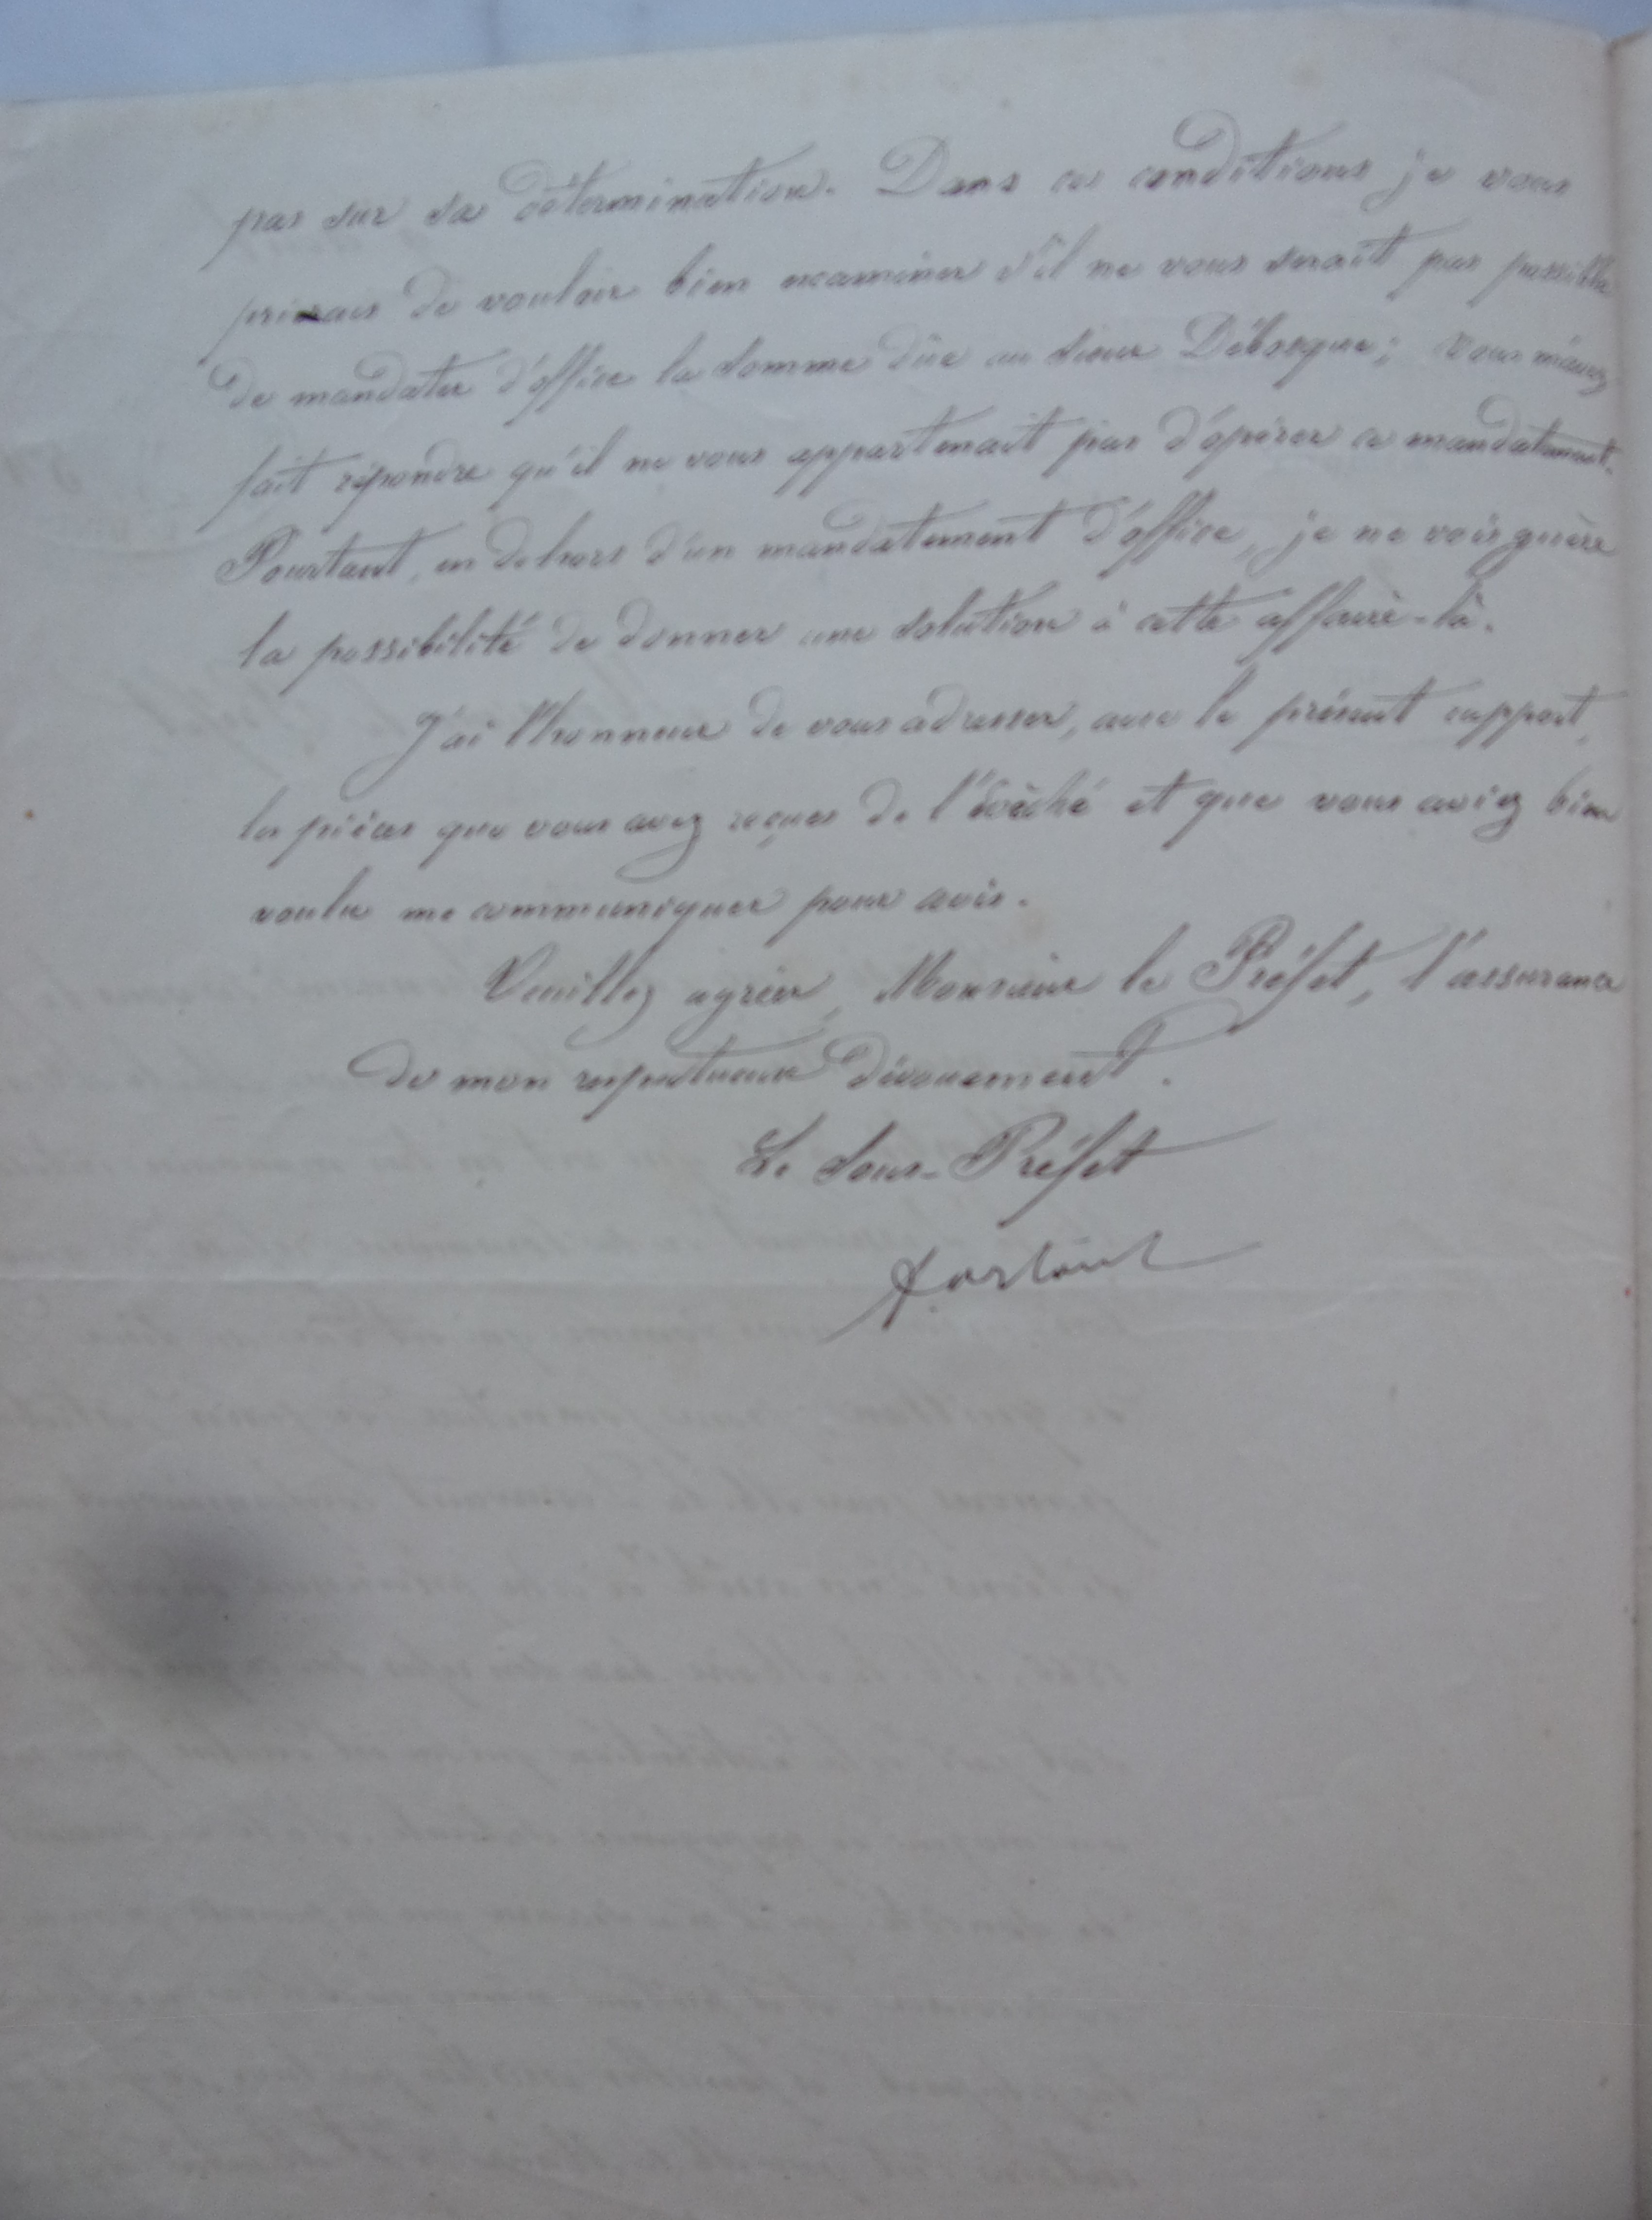 pas sur sa détermination. Dans ces conditions je vous
prierais de vouloir bien examiner s'il ne vous serait pas possible
de mandater d'office la somme dûe au sieur Débosque; vous m'avez
fait répondre qu'il ne vous appartenait pas d'opérer ce mandatement.
Pourtant, en dehors d'un mandatement d'office, je ne vois guère
la possibilité de donner une solution à cette affaire-là.
J'ai l'honneur de vous adresser, avec le présent rapport,
les pièces que vous avez reçues de l'évêché et que vous aviez bien
voulu me communiquer pour avis.
Veuillez agréer, Monsieur le Préfet, l'assurance
de mon respectueux dévouement.
Le Sous-Préfet